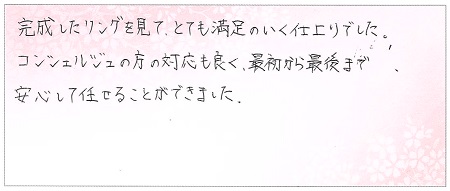 完成したリングを見て、とても満足のいく仕上りでした。
コンシェルジュの方の対応も良く、最初から最後まで、
安心して任せることができました。